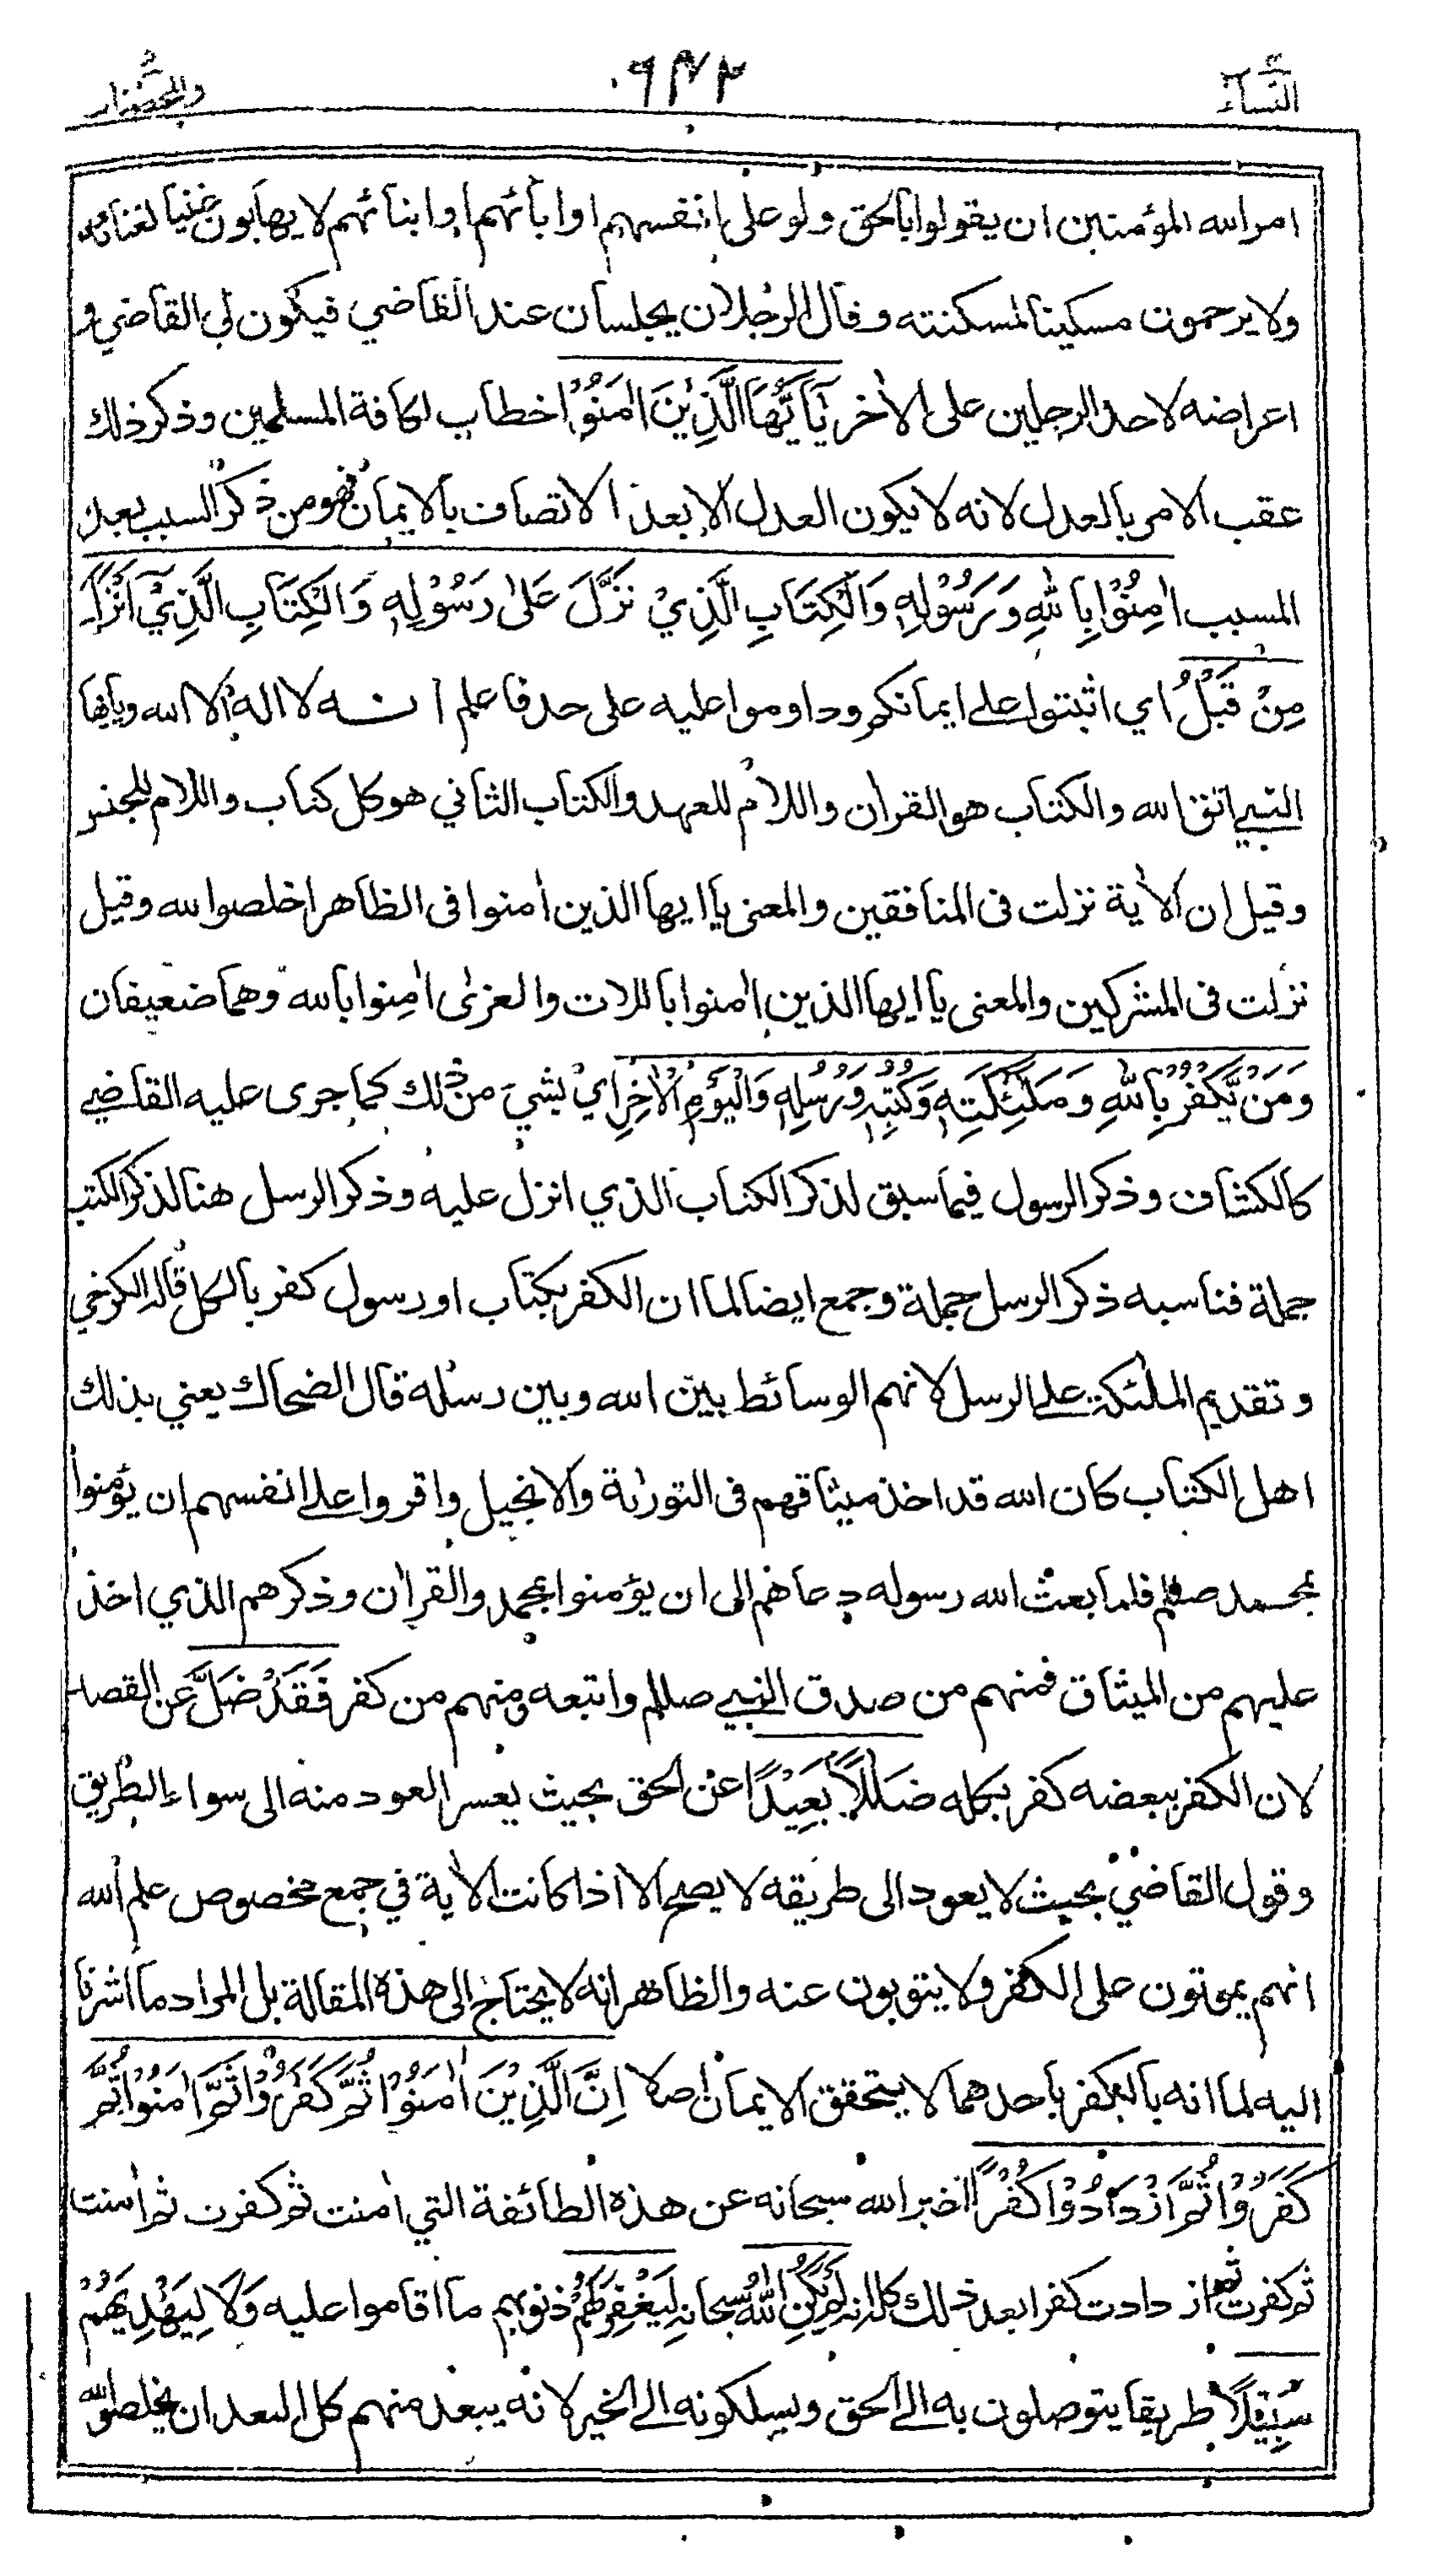 النساء ٦٤٢ والمحصنات
امر الله المؤمنين ان يقولوا بالحق ولو على انفسهم او ابائهم او ابنائهم لا يهابون غنيا لغنائه
ولا يرحمون مسكينا لمسكنته وقال الرجلان يجلسان عند القاضي فيكون لي القاضي و
اعراضه لاحد الرجلين على الاٰخر يٰٓاَيُّهَا الَّذِيْنَ اٰمَنُوْٓا خطاب لكافة المسلمين وذكر ذلك
عقب الامر بالعدل لانه لا يكون العدل الا بعد الاتصاف بالايمان فهو من ذكر السبب بعد
المسبب اٰمِنُوْا بِاللّٰهِ وَرَسُوْلِهٖ وَالْكِتَابِ الَّذِيْ نَزَّلَ عَلٰى رَسُوْلِهٖ وَالْكِتَابِ الَّذِيْٓ اَنْزَلَ
مِنْ قَبْلُ اي اثبتوا على ايمانكم وداوموا عليه على حد فاعلم انه لا اله الا الله ويايها
النبي اتق الله والكتاب هو القران واللام للعهد والكتاب الثاني هو كل كتاب واللام للجنس
وقيل ان الاٰية نزلت فى المنافقين والمعنى يا ايها الذين اٰمنوا فى الظاهر اخلصوا لله وقيل
نزلت فى المشركين والمعنى يا ايها الذين اٰمنوا باللات والعزىٰ اٰمِنوا بالله وهما ضعيفان
وَمَنْ يَّكْفُرْ بِاللّٰهِ وَمَلٰٓئِكَتِهٖ وَكُتُبِهٖ وَرُسُلِهٖ وَالْيَوْمِ الْاٰخِرِ اي بشيء من ذلك كما جرى عليه القاضي
كالكشاف وذكر الرسول فيما سبق لذكر الكتاب الذي انزل عليه وذكر الرسل هنا لذكر الكتب
جملة فناسبه ذكر الرسل جملة وجمع ايضا لما ان الكفر بكتاب او رسول كفر بالكل قاله الكرخي
وتقديم الملئكة على الرسل لانهم الوسائط بين الله وبين رسله قال الضحاك يعني بذلك
اهل الكتاب كان الله قد اخذ ميثاقهم فى التورٰىة والانجيل واقروا على انفسهم ان يؤمنوا
بمحمد صلعم فلما بعث الله رسوله دعاهم الى ان يؤمنوا بمحمد والقراٰن وذكرهم الذي اخذ
عليهم من الميثاق فمنهم من صدق النبي صللم واتبعه ومنهم من كفر فَقَدْ ضَلَّ عن القصد
لان الكفر ببعضه كفر بكله ضَلٰلاً بَعِيْدًا عن الحق بحيث يعسر العود منه الى سواء الطريق
وقول القاضي بحيث لا يعود الى طريقه لا يصح الا اذا كانت الاٰية في جمع مخصوص علم الله
انهم يموتون على الكفر ولا يتوبون عنه والظاهر انه لا يحتاج الى هذه المقالة بل المراد ما اشرنا
اليه لما انه بالكفر باحدهما لا يتحقق الايمان اصلا اِنَّ الَّذِيْنَ اٰمَنُوْا ثُمَّ كَفَرُوْا ثُمَّ اٰمَنُوْا ثُمَّ
كَفَرُوْا ثُمَّ ازْدَادُوْا كُفْرًا اخبر الله سبحانه عن هذه الطائفة التي اٰمنت ثم كفرت ثم اٰمنت
ثم كفرت ثم ازدادت كفرا بعد ذلك كله انه لَمْ يَكُنِ اللّٰهُ سبحانه لِيَغْفِرَ لَهُمْ ذنوبهم ما اقاموا عليه وَلَا لِيَهْدِيَهُمْ
سَبِيْلًا طريقا يتوصلون به الى الحق ويسلكونه الى الخير لانه يبعد منهم كل البعد ان يخلصوا لله